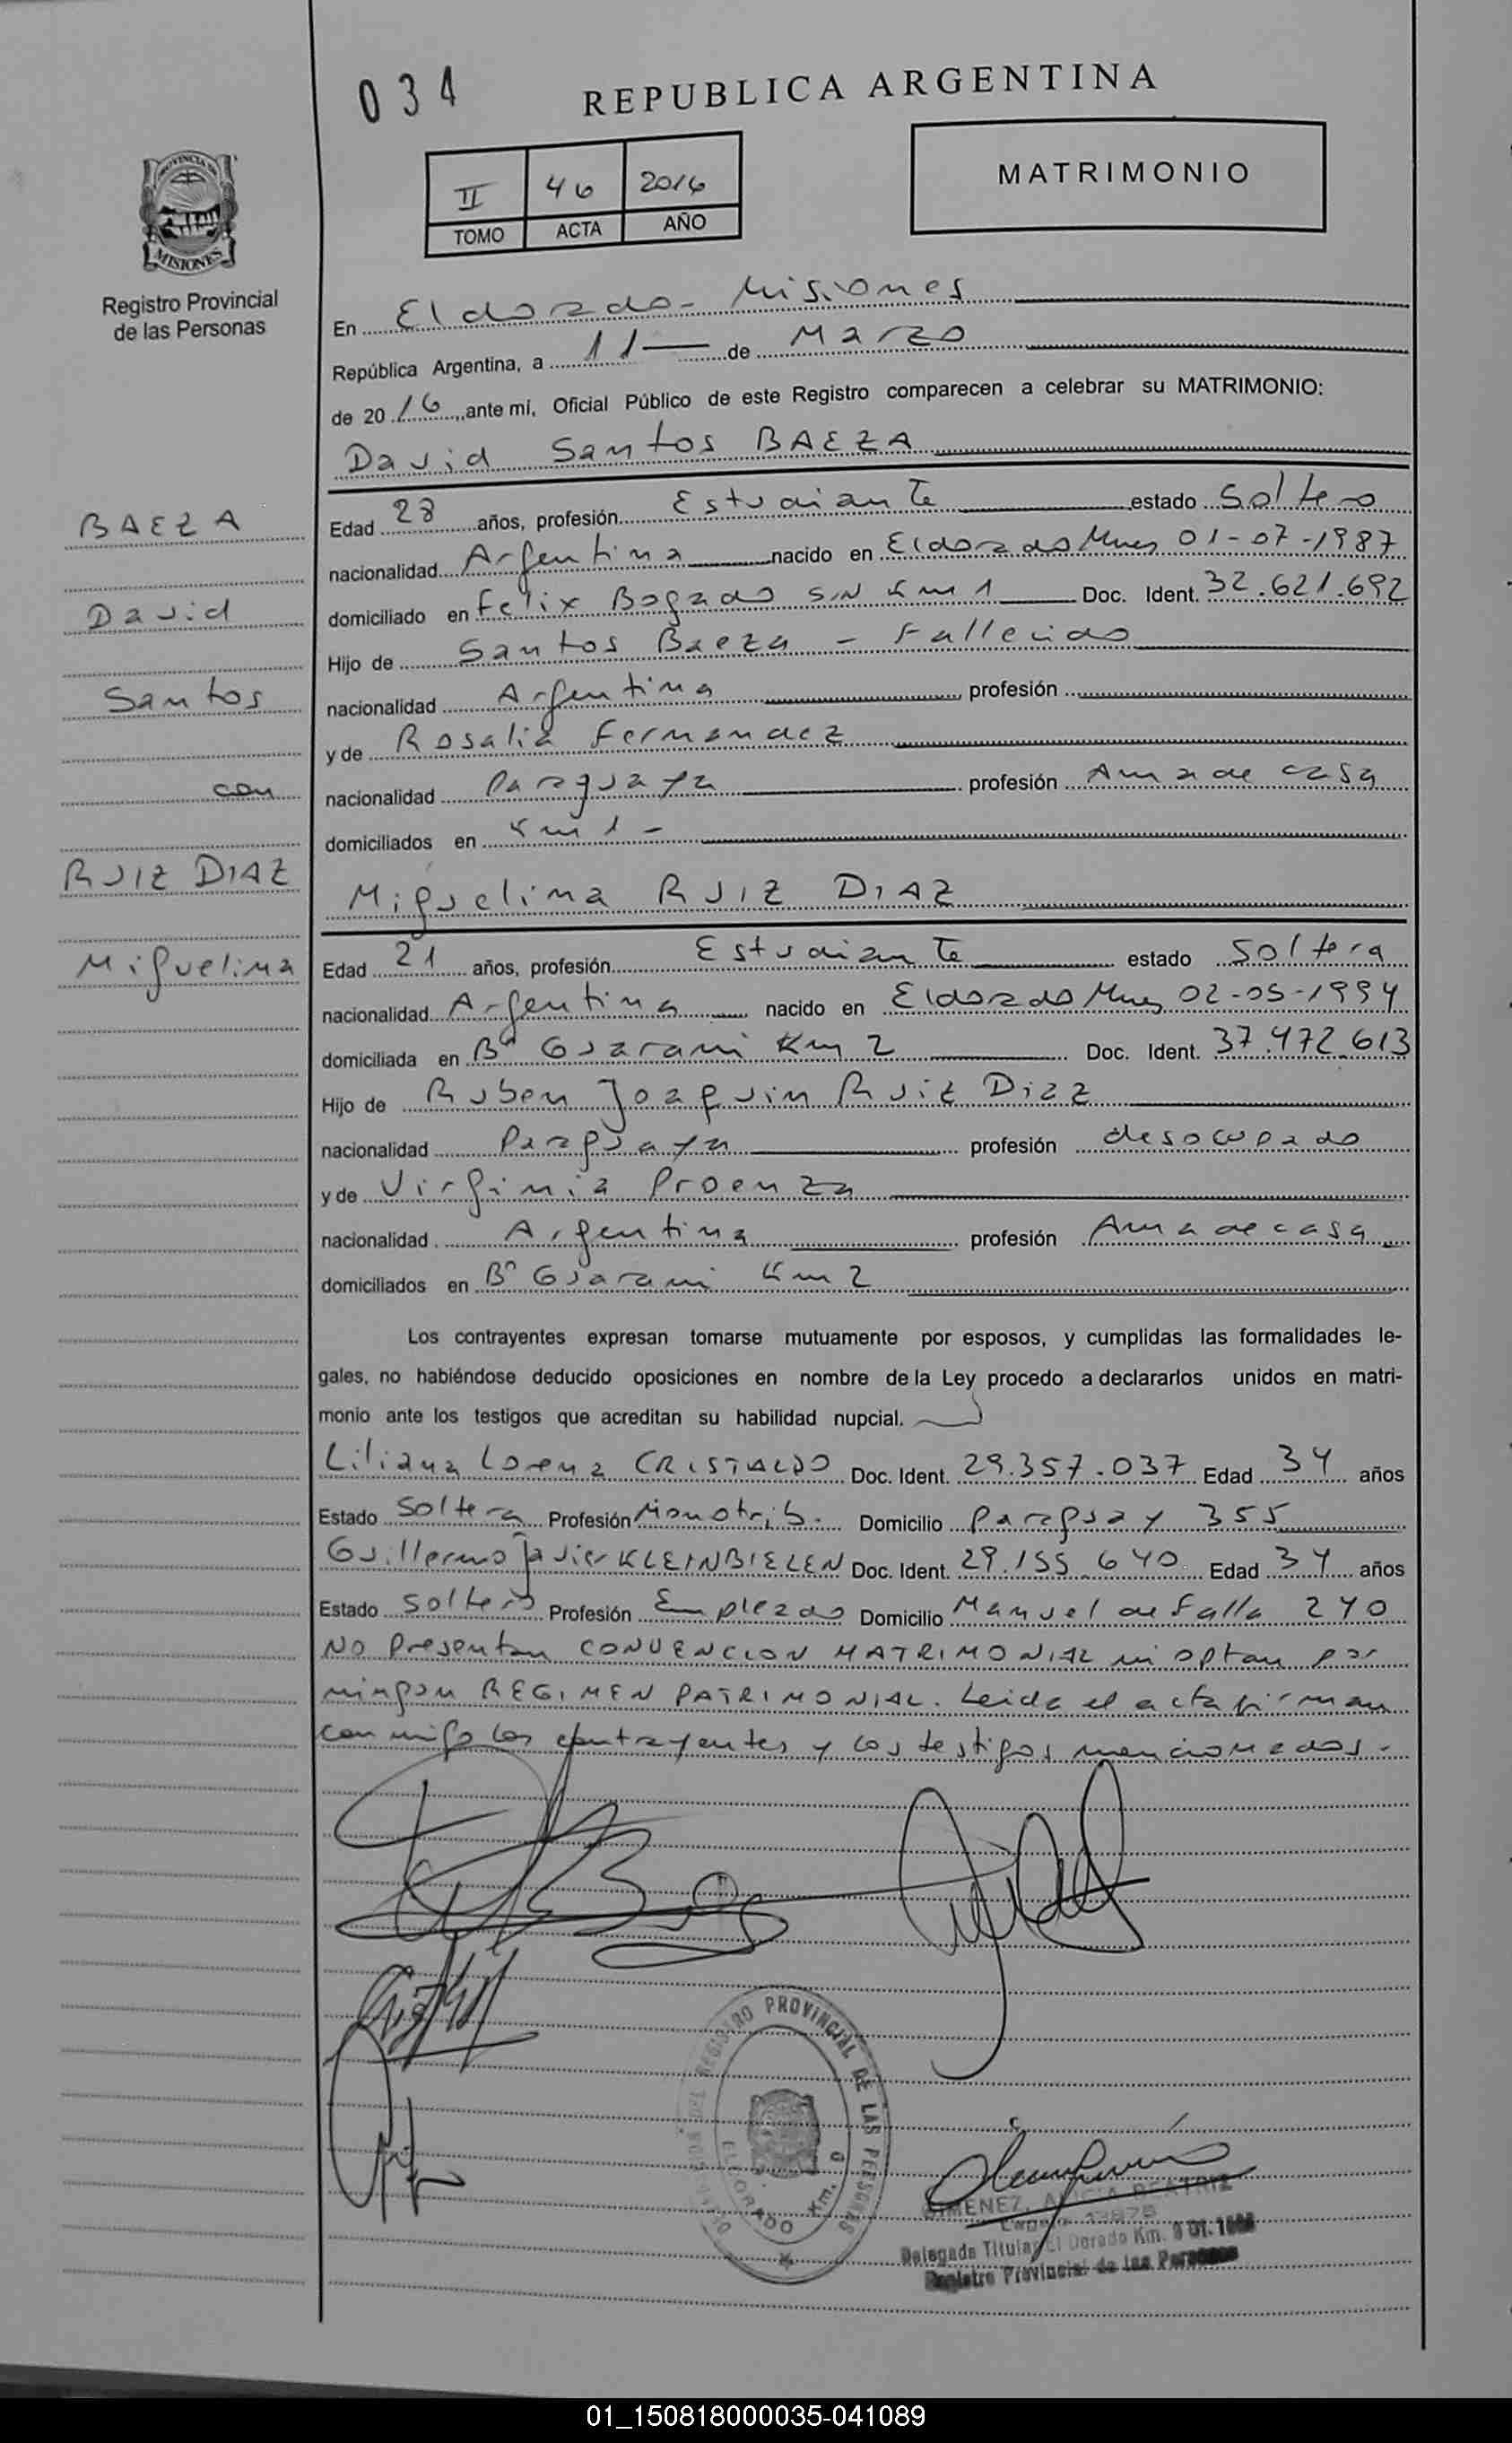 034
REPUBLICA ARGENTINA
MATRIMONIO
II 46 2016
TOMO ACTA AÑO
PROVINCIA DE
MISIONES
Registro Provincial
de las Personas
En Eldorado - Misiones
República Argentina, a 11 de Marzo
de 2016, ante mi, Oficial Público de este Registro comparecen a celebrar su MATRIMONIO:
David Santos BAEZA
BAEZA
David
Santos
con
RUIZ DIAZ
Miguelina
Edad 28 años, profesión Estudiante estado Soltero
nacionalidad Argentina nacido en Eldorado Mnes 01-07-1987
domiciliado en Felix Bogado S/N Km 1 Doc. Ident. 32.621.692
Hijo de Santos Baeza - Fallecido
nacionalidad Argentina, profesión
y de Rosalia Fernandez
nacionalidad Paraguaya profesión Ama de casa
domiciliados en Km 1 -
Miguelina RUIZ DIAZ
Edad 21 años, profesión Estudiante estado Soltera
nacionalidad Argentina nacido en Eldorado Mnes 02-05-1994
domiciliada en Bº Guarani Km 2 Doc. Ident. 37.472.613
Hijo de Ruben Joaquin Ruiz Diaz
nacionalidad Paraguaya profesión desocupado
y de Virginia Proenza
nacionalidad Argentina profesión Ama de casa
domiciliados en Bº Guarani Km 2
Los contrayentes expresan tomarse mutuamente por esposos, y cumplidas las formalidades le-
gales, no habiéndose deducido oposiciones en nombre de la Ley procedo a declararlos unidos en matri-
monio ante los testigos que acreditan su habilidad nupcial.
Liliana Lorena CRISTALDO Doc. Ident. 29.357.037 Edad 34 años
Estado Soltera Profesión Monotrib. Domicilio Paraguay 355
Guillermo Javier KLEINBIELEN Doc. Ident. 29.155.640 Edad 34 años
Estado Soltero Profesión Empleado Domicilio Manuel de Falla 240
No Presentan CONVENCION MATRIMONIAL ni optan por
ningun REGIMEN PATRIMONIAL. Leida el acta firman
conmigo los contrayentes y los testigos mencionados.-
REGISTRO PROVINCIAL DE LAS PERSONAS
ELDORADO Km. 9
GIMENEZ, ALICIA BEATRIZ
Delegada Titular El Dorado Km. 9
Registro Provincial de las Personas
01_150818000035-041089